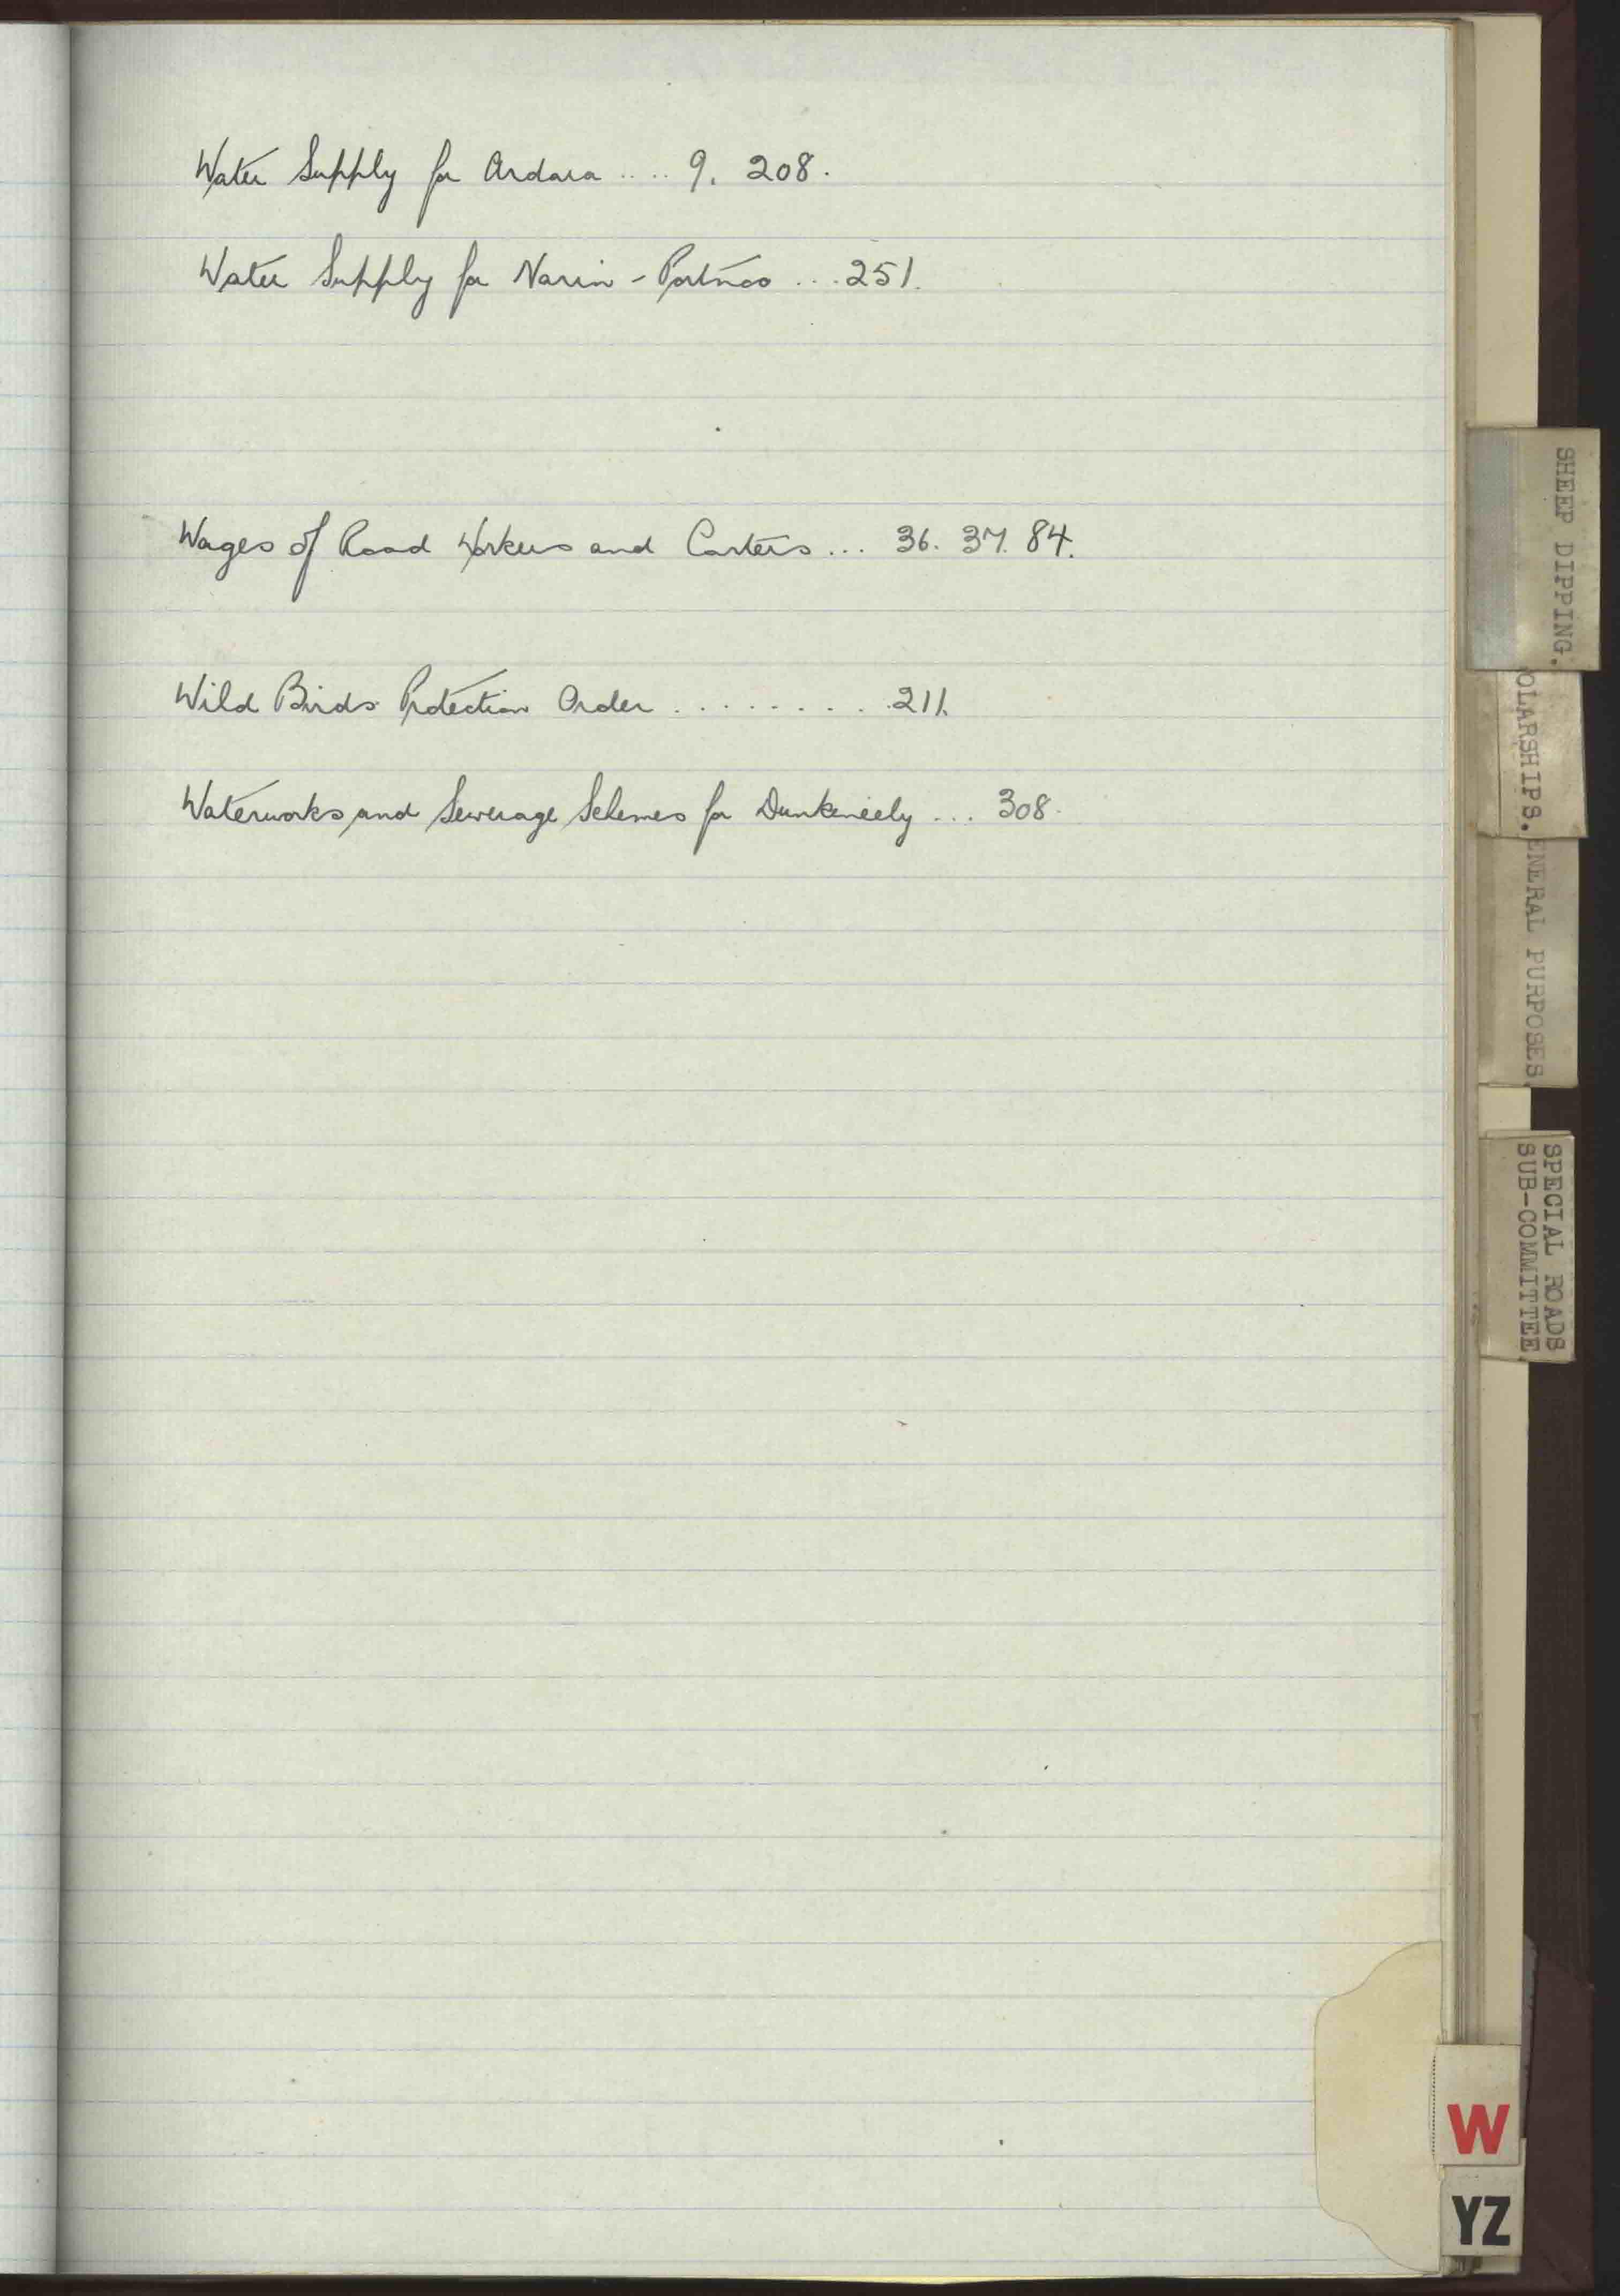 Water Supply for Ardara .... 9. 208.
Water Supply for Narin - Portnoo ... 251.
Wages of Road Workers and Carters ... 36. 37. 84.
Wild Birds Protection Order ......... 211.
Waterworks and Sewerage Schemes for Dunkineely ... 308.
SHEEP DIPPING.
OLARSHIPS.
ENERAL PURPOSES
SPECIAL ROADS
SUB-COMMITTEE
W
YZ